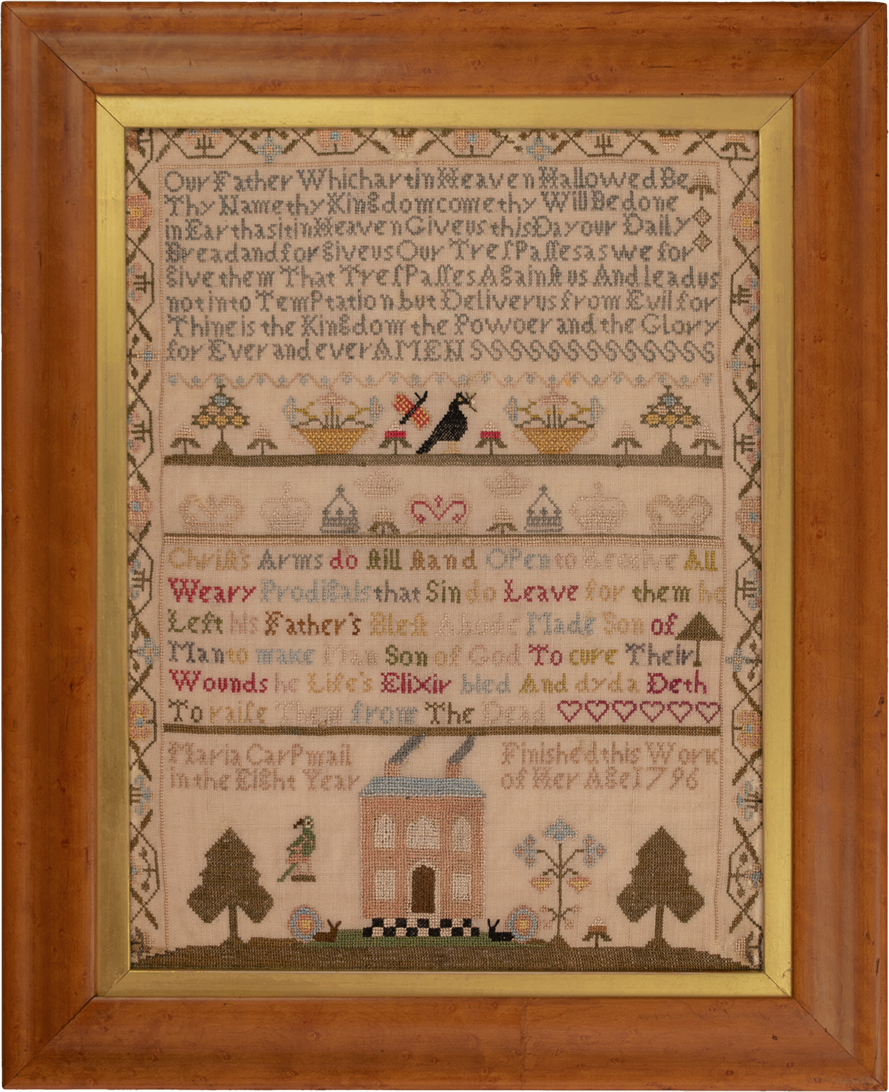 Our Father Which art in Heaven Hallowed Be
Thy Name thy Kingdom come thy Will Be done
in Earth as it in Heaven Give us this Day our Daily
Bread and for give us Our Treſpaſſes as we for
give them That Treſpaſſes Againſt us And lead us
not into Temptation but Deliver us from Evil for
Thine is the Kingdom the Powoer and the Glory
for Ever and ever AMEN
Chriſt's Arms do ſtill ſtand OPen to Receive All
Weary Prodigals that Sin do Leave for them he
Left his Father's Bleſt Abode Made Son of
Man to make Man Son of God To cure Their
Wounds he Life's Elixir bled And dyd a Deth
To raiſe Them from The Dead
Maria CarPmail Finish'd this Work
in the Eight Year of Her Age 1796